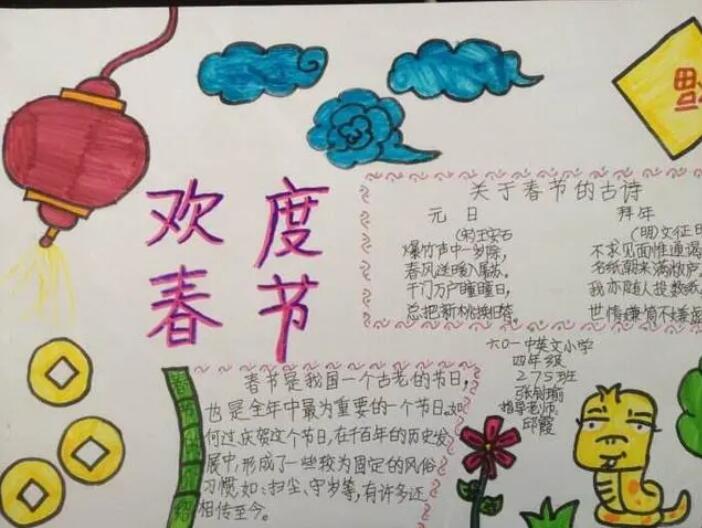 福
欢度
春节
关于春节的古诗
元日
(宋)王安石
爆竹声中一岁除,
春风送暖入屠苏。
千门万户曈曈日,
总把新桃换旧符。
拜年
(明)文征明
不求见面惟通谒
名纸朝来满敝庐
我亦随人投数纸
世情嫌简不嫌虚
六0一中英文小学
四年级
275班
指导老师:
邱霞
春节的介绍
春节是我国一个古老的节日,
也是全年中最为重要的一个节日。如
何过、庆贺这个节日,在千百年的历史发
展中,形成了一些较为固定的风俗
习惯,如:扫尘、守岁等,有许多还
相传至今。